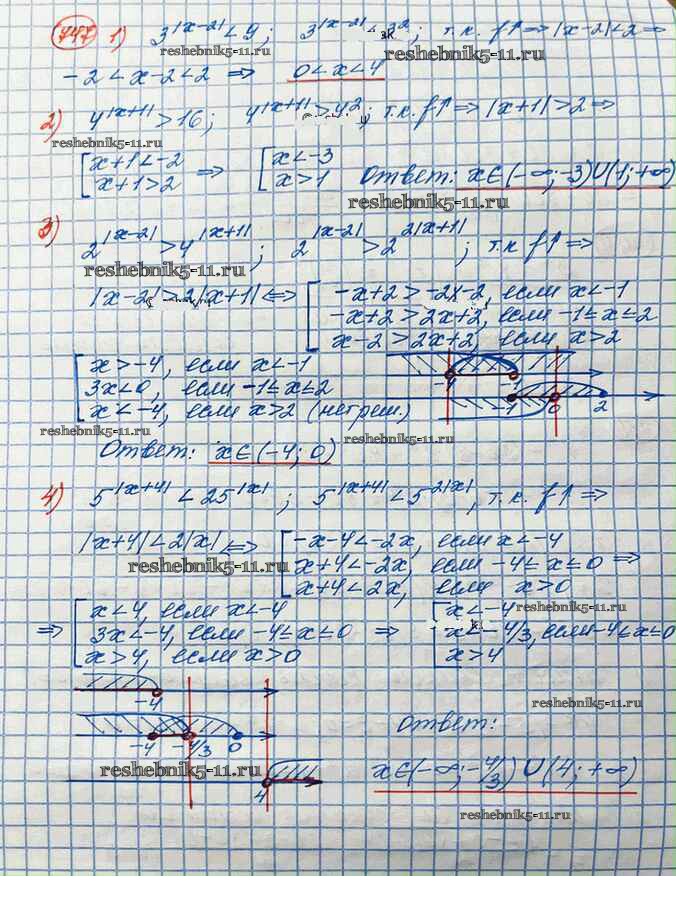 747 1) 3^|x-2| < 9; 3^|x-2| < 3^2; т.к. f↑ ⇒ |x-2| < 2 ⇒
reshebnik5-11.ru reshebnik5-11.ru
-2 < x-2 < 2 ⇒ 0 < x < 4
2) 4^|x+1| > 16; 4^|x+1| > 4^2; т.к. f↑ ⇒ |x+1| > 2 ⇒
reshebnik5-11.ru
[ x+1 < -2 ⇒ [ x < -3 Ответ: x∈(-∞;-3)∪(1;+∞)
x+1 > 2 x > 1
reshebnik5-11.ru
3) 2^|x-2| > 4^|x+1|; 2^|x-2| > 2^2|x+1|; т.к f↑ ⇒
reshebnik5-11.ru
|x-2| > 2|x+1| ⇔ [ -x+2 > -2x-2, если x < -1
-x+2 > 2x+2, если -1 ≤ x ≤ 2
x-2 > 2x+2, если x > 2
[ x > -4, если x < -1
3x < 0, если -1 ≤ x ≤ 2
x < -4, если x > 2 (нет реш.)
-4 -1
-1 0 2
reshebnik5-11.ru
Ответ: x∈(-4; 0)
4) 5^|x+4| < 25^|x|; 5^|x+4| < 5^2|x|, т.к. f↑ ⇒
|x+4| < 2|x| ⇔ [ -x-4 < -2x, если x < -4
x+4 < -2x, если -4 ≤ x ≤ 0 ⇒
x+4 < 2x, если x > 0
reshebnik5-11.ru
⇒ [ x < 4, если x < -4 [ x < -4
3x < -4, если -4 ≤ x ≤ 0 ⇒ x < -4/3, если -4 ≤ x ≤ 0
x > 4, если x > 0 x > 4
reshebnik5-11.ru
-4
reshebnik5-11.ru
-4 -4/3 0
Ответ:
reshebnik5-11.ru
x∈(-∞; -4/3)∪(4; +∞)
4
reshebnik5-11.ru